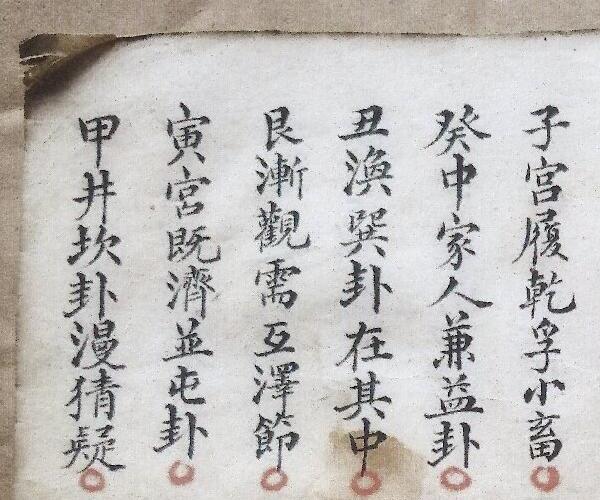 子宮履乾孚小畜
癸中家人兼益卦
丑渙巽卦在其中
艮漸觀需互澤節
寅宮既濟並屯卦
甲井坎卦漫猜疑